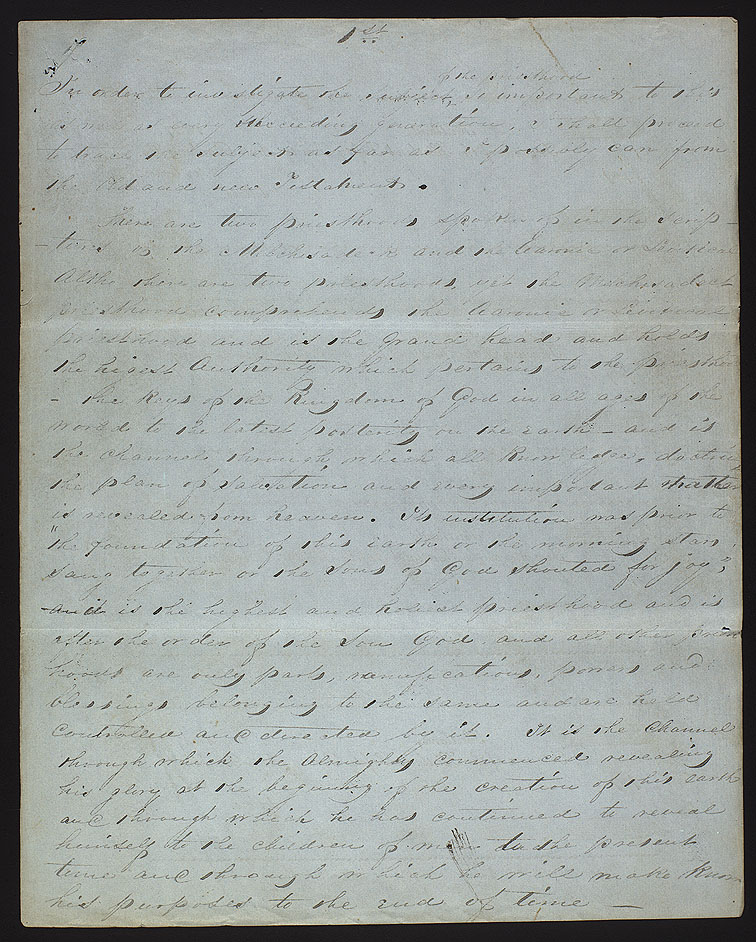 1st
of the priesthood
In order to investigate the subject, so important to this
as well as every succeeding generation, I shall proceed
to trace the subject as far as I possibly can from
the Old and new Testaments.
There are two priesthoods spoken of in the Scrip-
-tures viz the Melchisadeck and the Aaronic or Levitical
Altho there are two priesthoods, yet the Melchisadeck
priesthood comprehends the Aaronic or Levitical
priesthood and is the Grand head and holds
the higest Authority which pertains to the priesthood
- the keys of the Kingdom of God in all ages of the
world to the latest posterity on the earth - and is
the channel through which all knowledge, doctrine
the plan of salvation and every important matter
is revealed from heaven. Its institution was prior to
"the foundation of this earth or the morning stars
sang together or the Sons of God shouted for joy",
and is the highest and holiest priesthood and is
after the order of the Son God, and all other priest
hoods are only parts, ramifications, powers and
blessings belonging to the same and are held
controlled and directed by it. It is the channel
through which the Almighty commenced revealing
his glory at the begining of the creation of this earth
and through which he has continued to reveal
himself to the children of men to the present
time and through which he will make known
his purposes to the end of time -